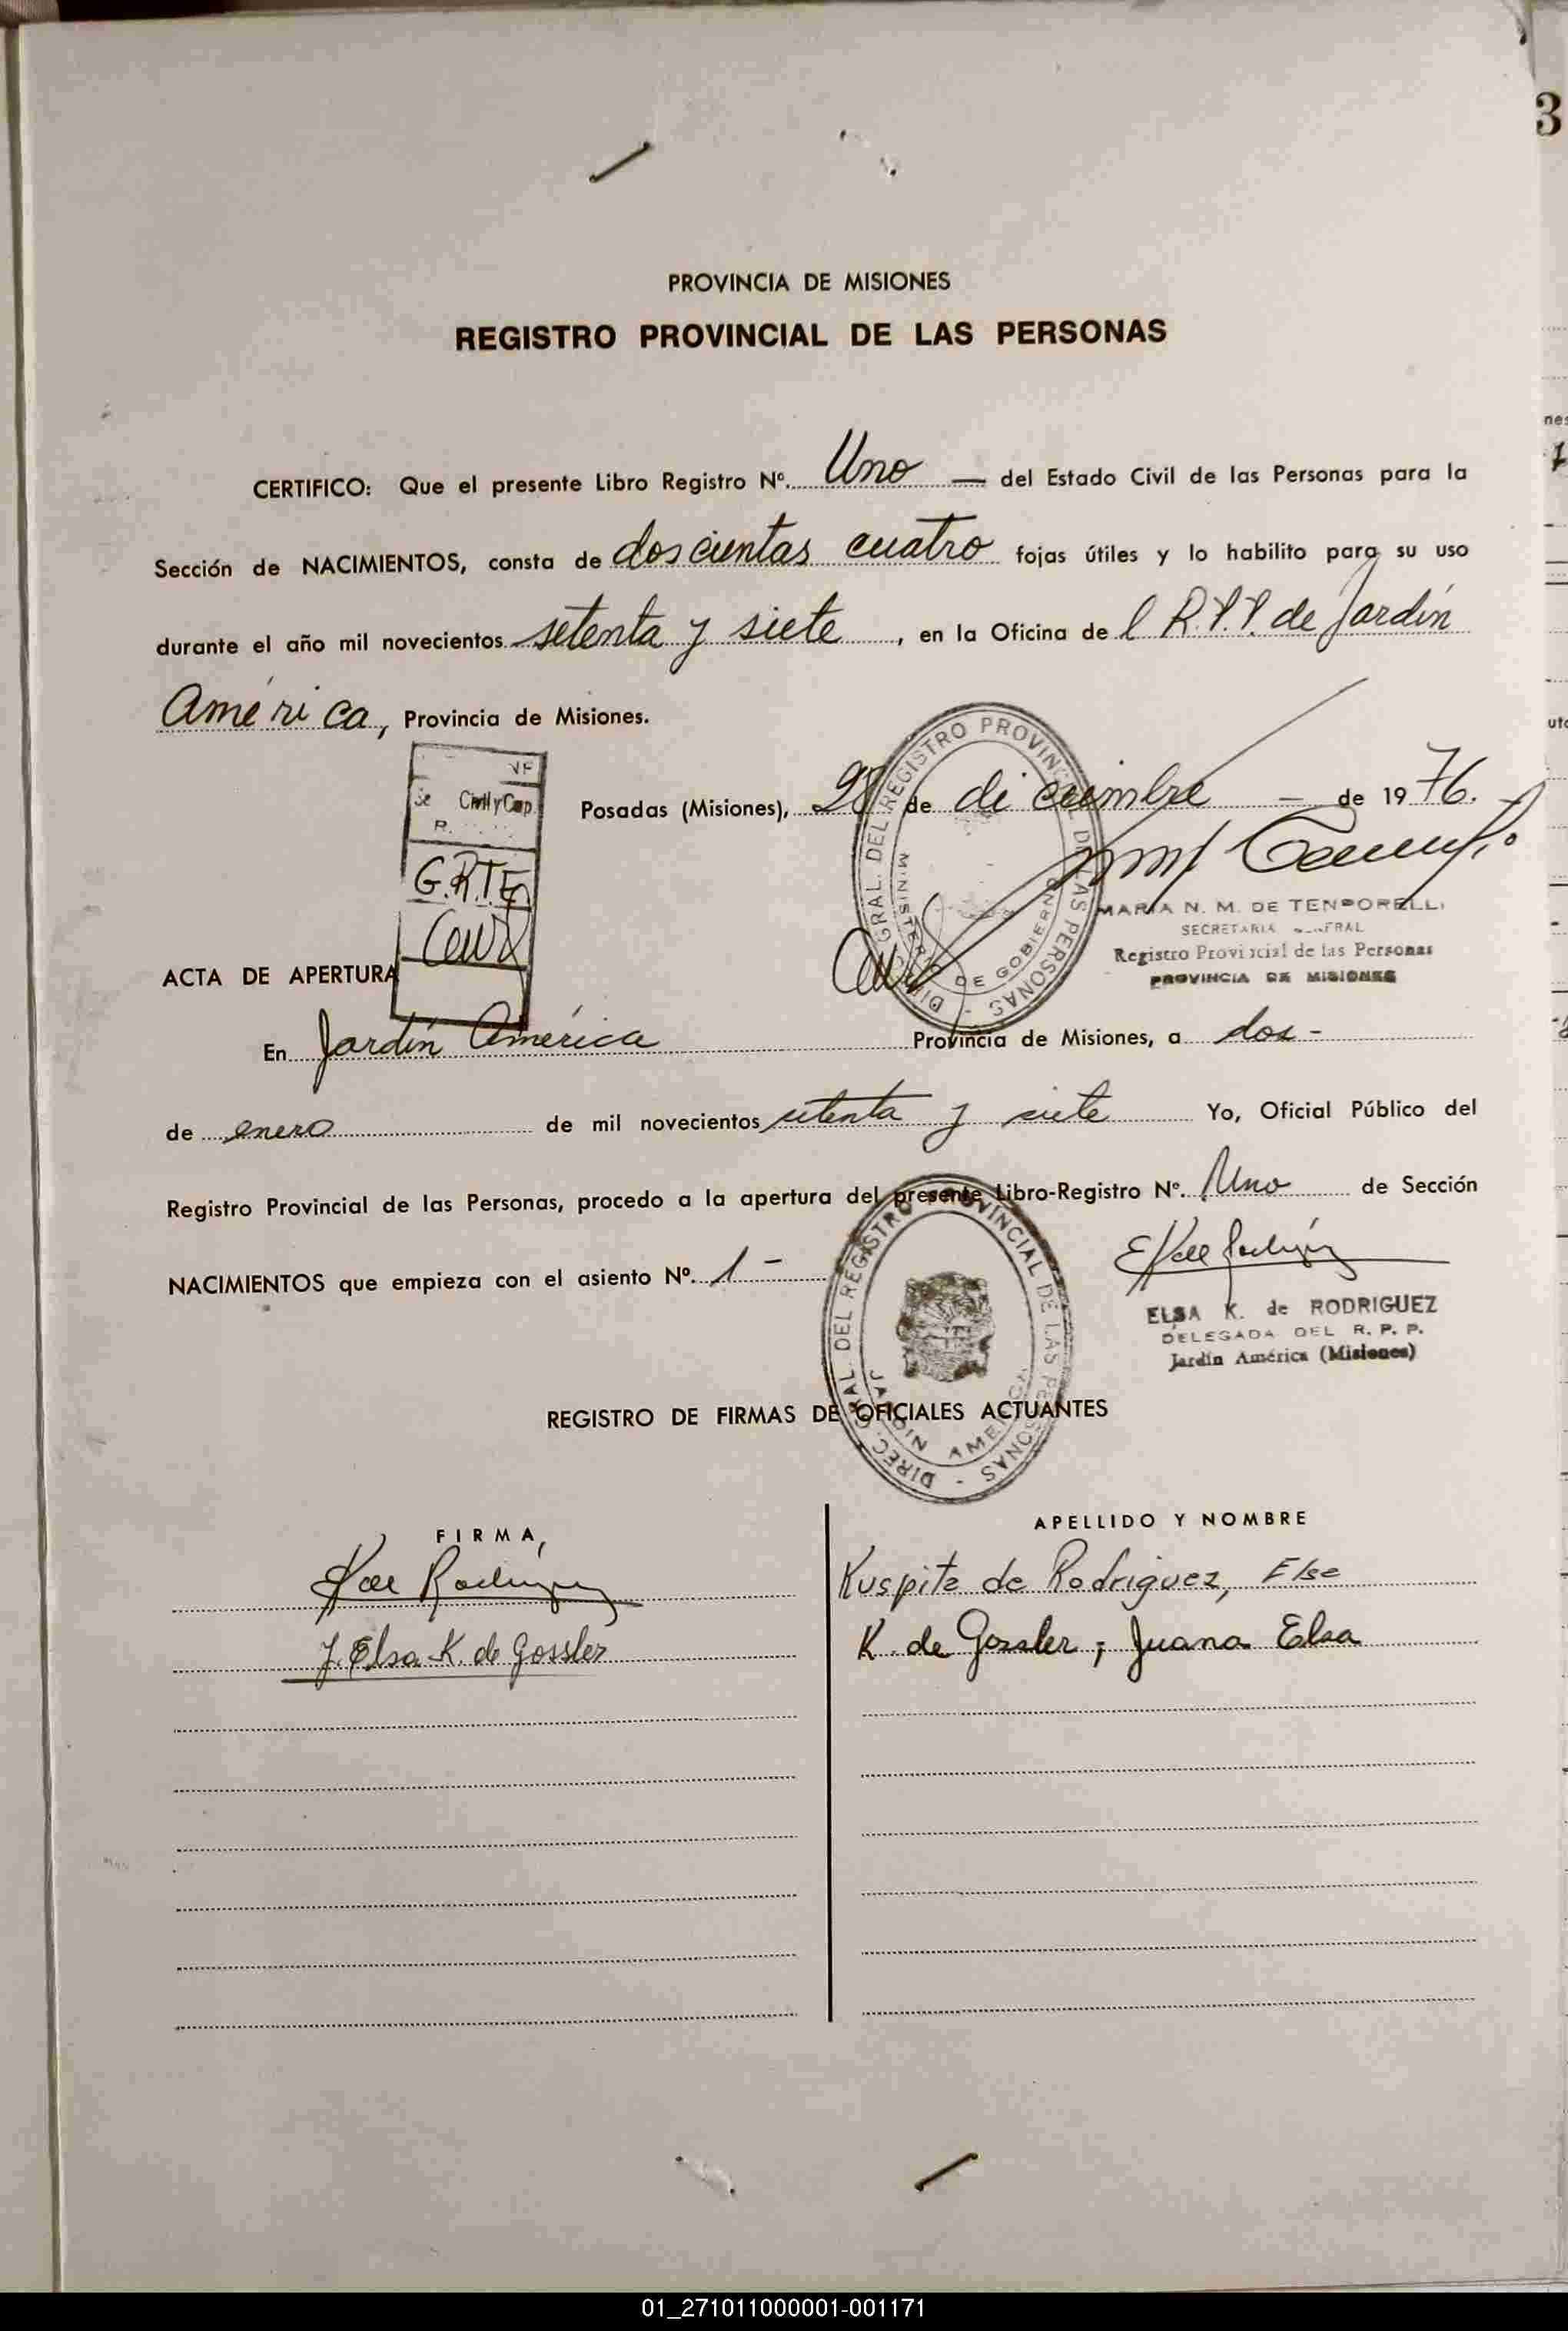 3
PROVINCIA DE MISIONES
REGISTRO PROVINCIAL DE LAS PERSONAS
CERTIFICO: Que el presente Libro Registro Nº. Uno — del Estado Civil de las Personas para la
Sección de NACIMIENTOS, consta de doscientas cuatro fojas útiles y lo habilito para su uso
durante el año mil novecientos setenta y siete, en la Oficina de l R.P.P. de Jardín
América, Provincia de Misiones.
Civil y Cap.
G.R.T.E
Posadas (Misiones), 28 de diciembre — de 1976.
DIREC. GRAL. DEL REGISTRO PROVINCIAL DE LAS PERSONAS -
MINISTERIO DE GOBIERNO
MARIA N. M. DE TEMPORELLI
SECRETARIA GENERAL
Registro Provincial de las Personas
PROVINCIA DE MISIONES
ACTA DE APERTURA
En Jardín América Provincia de Misiones, a dos -
de enero de mil novecientos setenta y siete Yo, Oficial Público del
Registro Provincial de las Personas, procedo a la apertura del presente Libro-Registro Nº. Uno de Sección
NACIMIENTOS que empieza con el asiento Nº. 1 -
ELSA K. de RODRIGUEZ
DELEGADA DEL R. P. P.
Jardín América (Misiones)
DIREC. GRAL. DEL REGISTRO PROVINCIAL DE LAS PERSONAS -
JARDIN AMERICA
REGISTRO DE FIRMAS DE OFICIALES ACTUANTES
FIRMA APELLIDO Y NOMBRE
Rodríguez Kuspita de Rodriguez, Elsa
J. Elsa K. de Gossler K. de Gossler, Juana Elsa
01_271011000001-001171